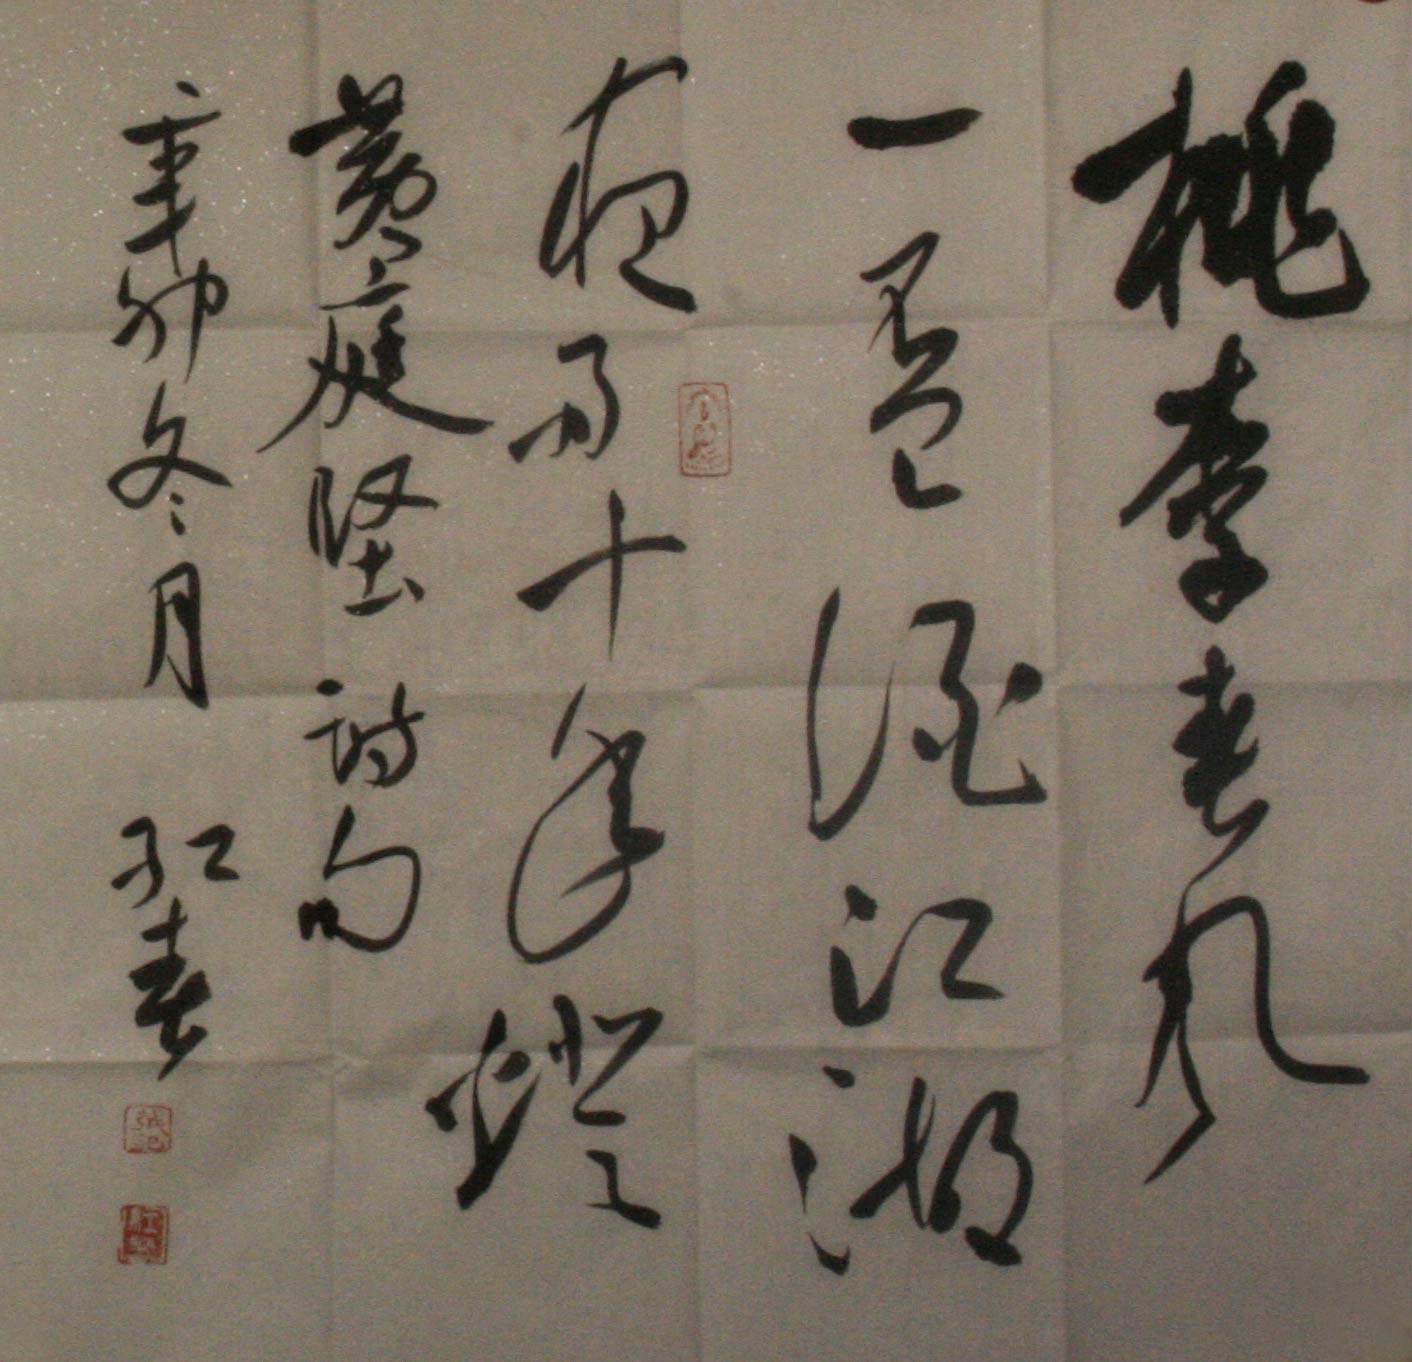 桃李春风
一杯酒江湖
夜雨十年灯
黄庭坚诗句
辛卯冬月 红春